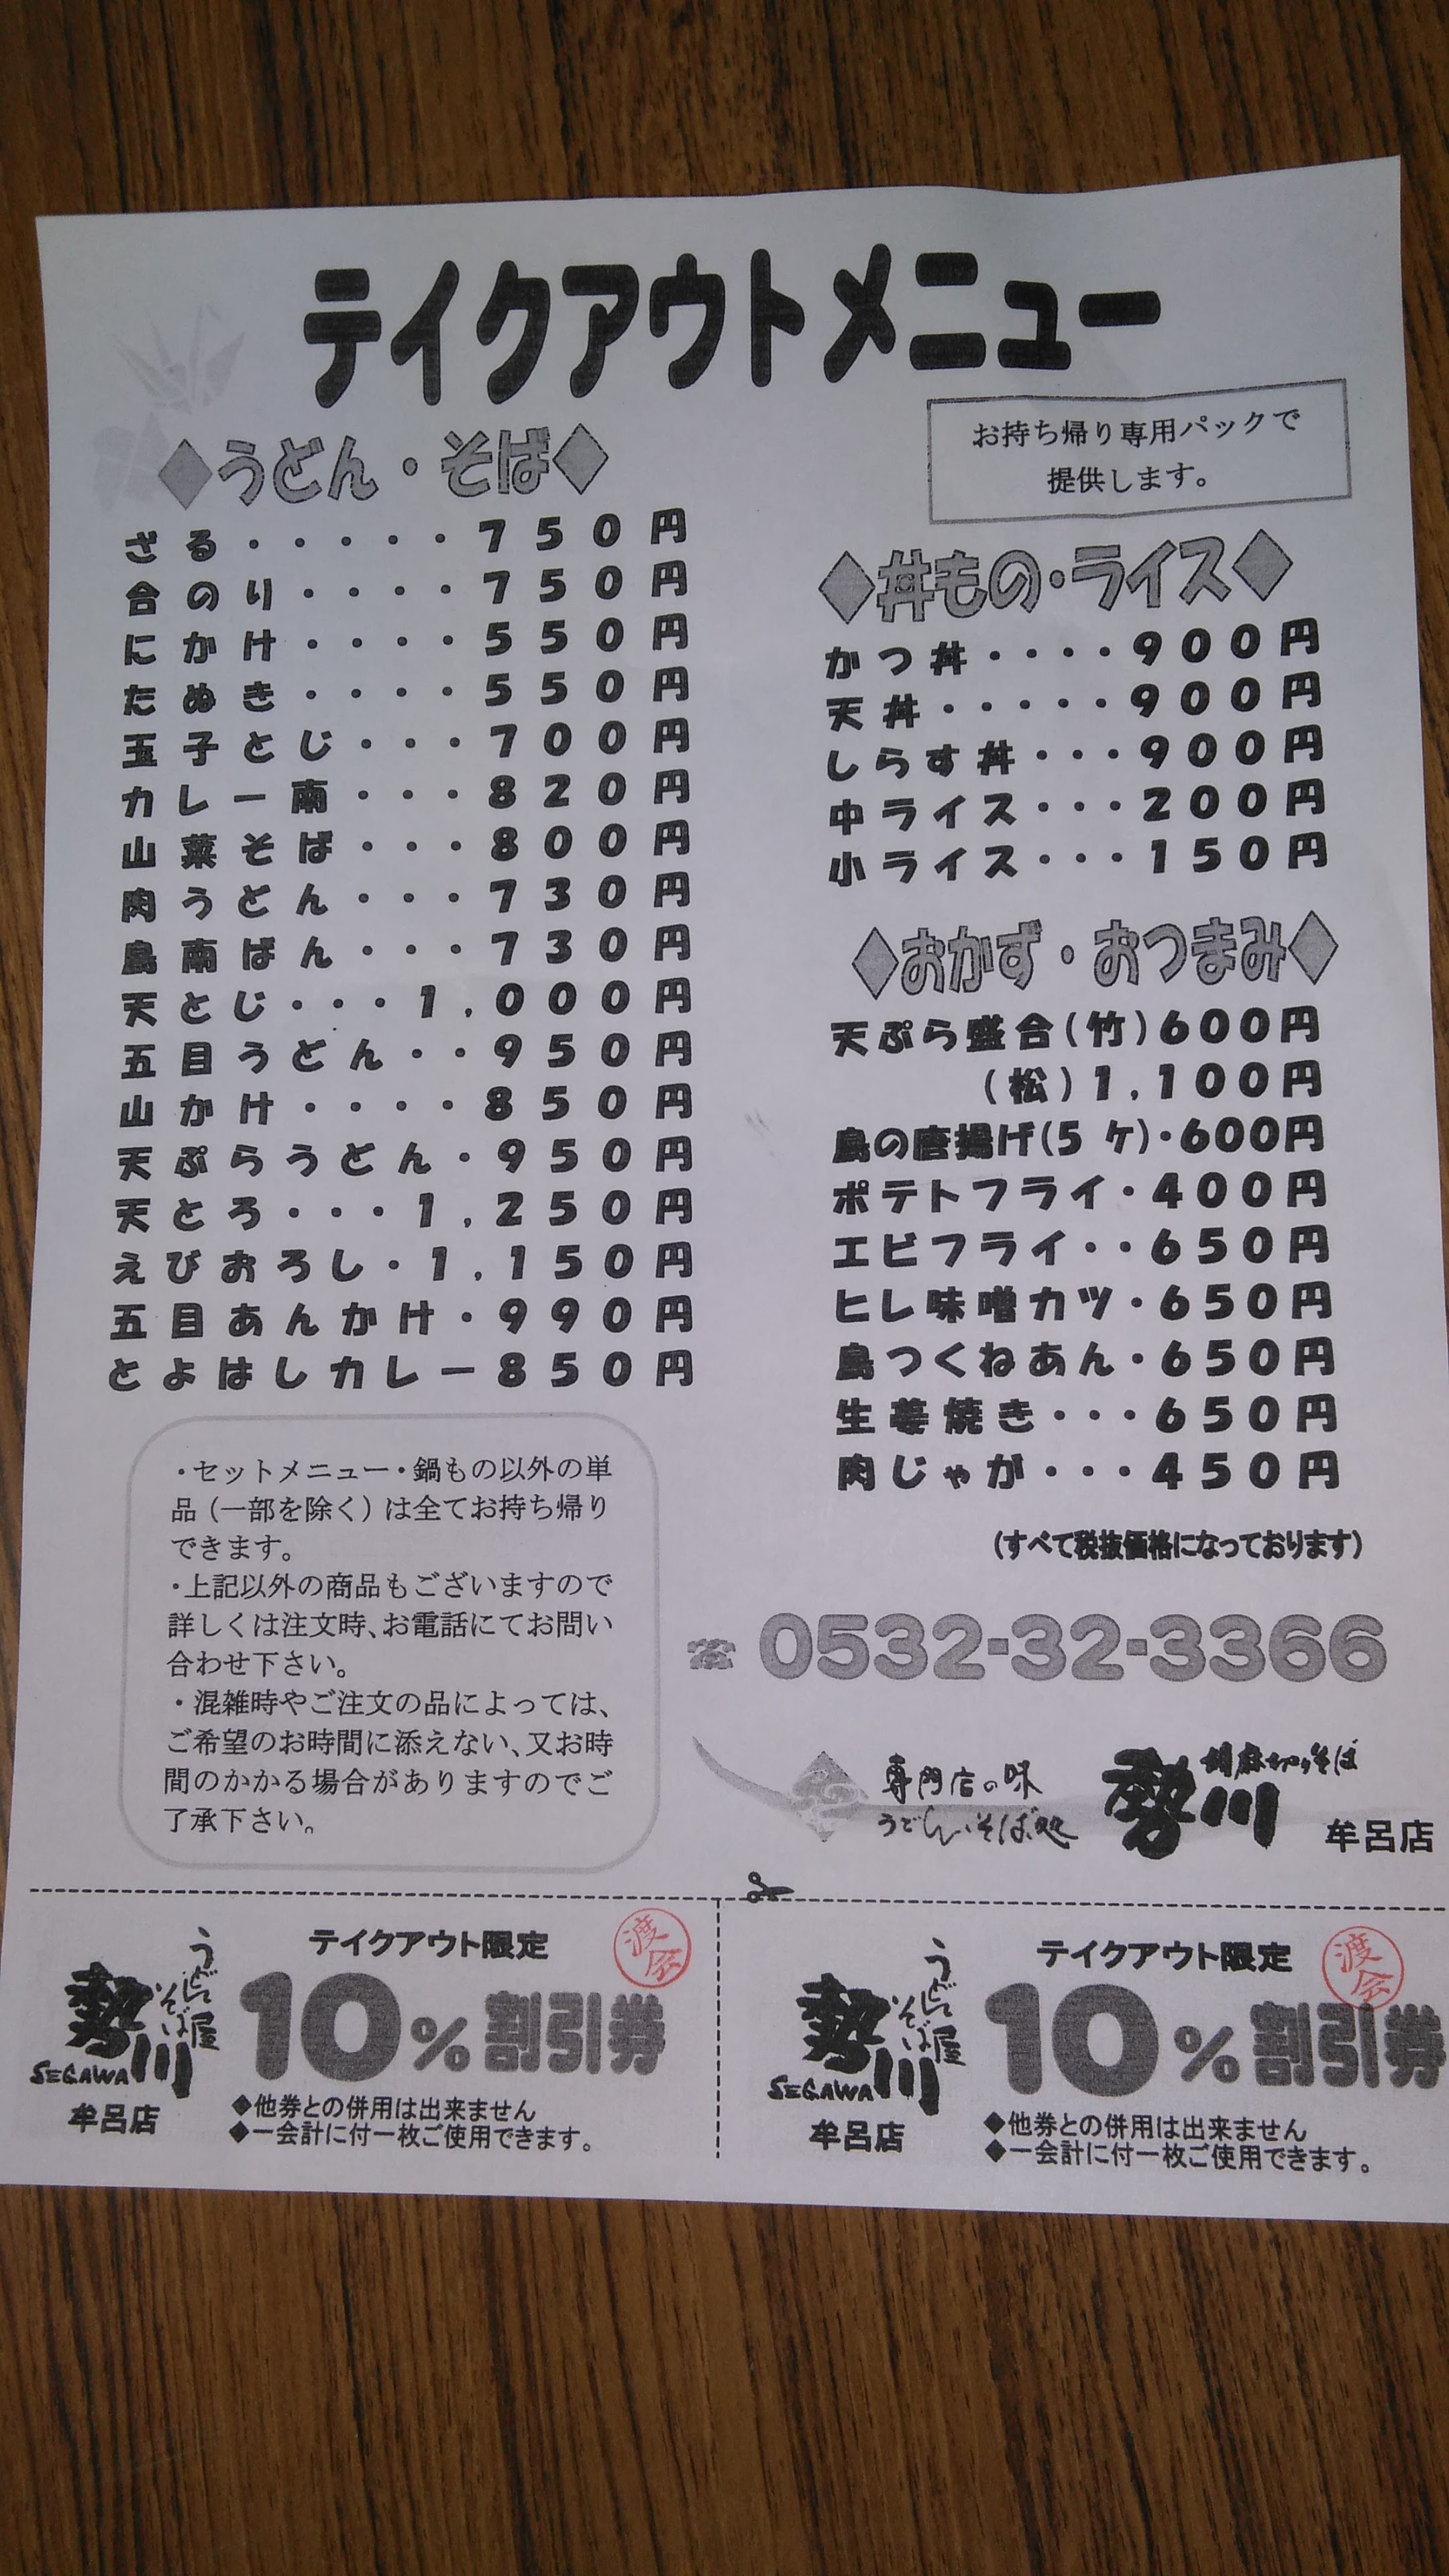 テイクアウトメニュー
お持ち帰り専用パックで
提供します。
◆うどん・そば◆
ざる・・・・・750円
合のり・・・・750円
にかけ・・・・550円
たぬき・・・・550円
玉子とじ・・・700円
カレー南・・・820円
山菜そば・・・800円
肉うどん・・・730円
鳥南ばん・・・730円
天とじ・・・1,000円
五目うどん・・950円
山かけ・・・・850円
天ぷらうどん・950円
天とろ・・・1,250円
えびおろし・1,150円
五目あんかけ・990円
とよはしカレー850円
◆丼もの・ライス◆
かつ丼・・・・900円
天丼・・・・・900円
しらす丼・・・900円
中ライス・・・200円
小ライス・・・150円
◆おかず・おつまみ◆
天ぷら盛合(竹)600円
(松)1,100円
鳥の唐揚げ(5ヶ)・600円
ポテトフライ・400円
エビフライ・・650円
ヒレ味噌カツ・650円
鳥つくねあん・650円
生姜焼き・・・650円
肉じゃが・・・450円
(すべて税抜価格になっております)
・セットメニュー・鍋もの以外の単
品(一部を除く)は全てお持ち帰り
できます。
・上記以外の商品もございますので
詳しくは注文時、お電話にてお問い
合わせ下さい。
・混雑時やご注文の品によっては、
ご希望のお時間に添えない、又お時
間のかかる場合がありますのでご
了承下さい。
☎0532-32-3366
専門店の味
うどん・そば処
勢川
胡麻切りそば
牟呂店
うどんそば屋
勢川
SEGAWA
牟呂店
テイクアウト限定
渡会
10%割引券
◆他券との併用は出来ません
◆一会計に付一枚ご使用できます。
うどんそば屋
勢川
SEGAWA
牟呂店
テイクアウト限定
渡会
10%割引券
◆他券との併用は出来ません
◆一会計に付一枚ご使用できます。